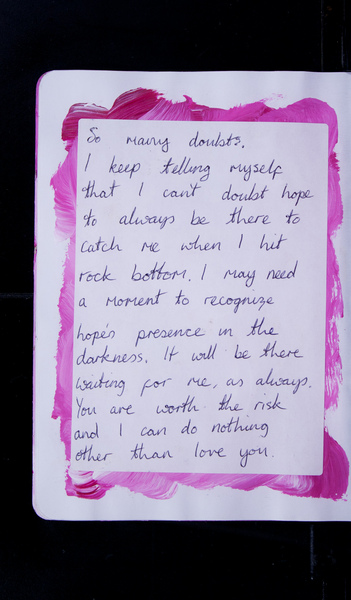 So many doubts.
I keep telling myself
that I can't doubt hope
to always be there to
catch me when I hit
rock bottom. I may need
a moment to recognize
hope's presence in the
darkness. It will be there
waiting for me, as always.
You are worth the risk
and I can do nothing
other than love you.